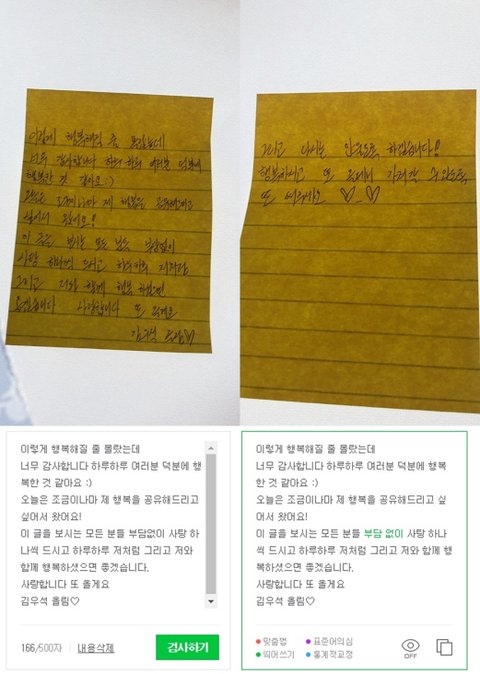 이렇게 행복해질 줄 몰랐는데
너무 감사합니다 하루하루 여러분 덕분에
행복한 것 같아요 :)
오늘은 조금이나마 제 행복을 공유해드리고
싶어서 왔어요!
이 글을 보시는 모든 분들 부담없이
사탕 하나씩 드시고 하루하루 저처럼
그리고 저와 함께 행복 하셨으면
좋겠습니다 사랑합니다 또 올게요
김우석 올림♡
그리고 다시는 안울도록 하겠습니다!
행복하시고 또
또 ♡_♡
이렇게 행복해질 줄 몰랐는데
너무 감사합니다 하루하루 여러분 덕분에 행
복한 것 같아요 :)
오늘은 조금이나마 제 행복을 공유해드리고
싶어서 왔어요!
이 글을 보시는 모든 분들 부담없이 사탕 하
나씩 드시고 하루하루 저처럼 그리고 저와
함께 행복하셨으면 좋겠습니다.
사랑합니다 또 올게요
김우석 올림♡
166/500자 내용삭제 검사하기
이렇게 행복해질 줄 몰랐는데
너무 감사합니다 하루하루 여러분 덕분에 행복
한 것 같아요 :)
오늘은 조금이나마 제 행복을 공유해드리고 싶
어서 왔어요!
이 글을 보시는 모든 분들 부담 없이 사탕 하나
씩 드시고 하루하루 저처럼 그리고 저와 함께 행
복하셨으면 좋겠습니다.
사랑합니다 또 올게요
김우석 올림♡
맞춤법 표준어의심
띄어쓰기 통계적교정
OFF